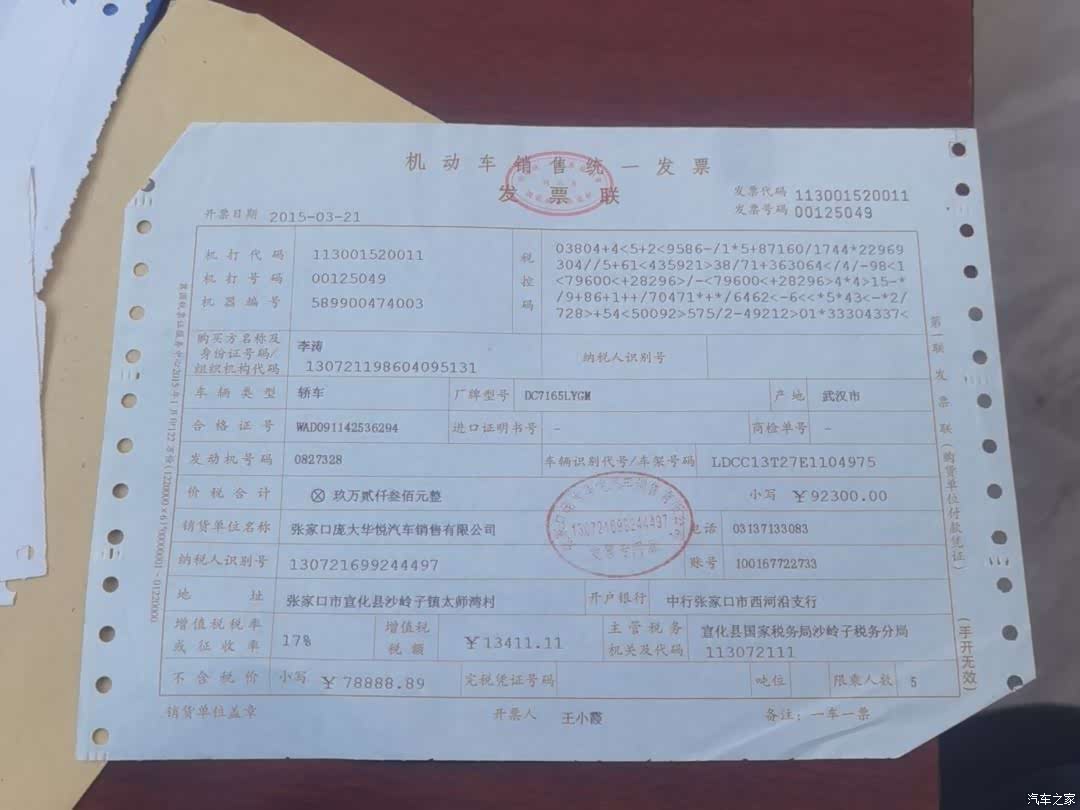 机动车销售统一发票
发票联
发票代码 113001520011
发票号码 00125049
开票日期 2015-03-21
机打代码 113001520011
机打号码 00125049
机器编号 589900474003
税控码
03804+4<5+2<9586-/1*5+87160/1744*22969
304//5+61<435921>38/71+363064</4/-98<1
<79600<+28296>/-<79600<+28296>4*4>15-*
/9+86+1++/70471*+*/6462<-6<<*5*43<-*2/
728>+54<50092>575/2-49212>01*33304337<
购买方名称及身份证号码/组织机构代码 李涛
130721198604095131
纳税人识别号
车辆类型 轿车 厂牌型号 DC7165LYGM 产地 武汉市
合格证号 WAD091142536294 进口证明书号 - 商检单号 -
发动机号码 0827328 车辆识别代号/车架号码 LDCC13T27E1104975
价税合计 ⊗玖万贰仟叁佰元整 小写 ¥92300.00
销货单位名称 张家口庞大华悦汽车销售有限公司 电话 03137133083
纳税人识别号 130721699244497 账号 100167722733
地址 张家口市宣化县沙岭子镇太师湾村 开户银行 中行张家口市西河沿支行
增值税税率或征收率 17% 增值税税额 ¥13411.11 主管税务机关及代码 宣化县国家税务局沙岭子税务分局
113072111
不含税价 小写 ¥78888.89 完税凭证号码 吨位 限乘人数 5
销货单位盖章 开票人 王小霞 备注：一车一票
第一联 发票联（购货单位付款凭证）
（手开无效）
130721699244497
发票专用章
汽车之家